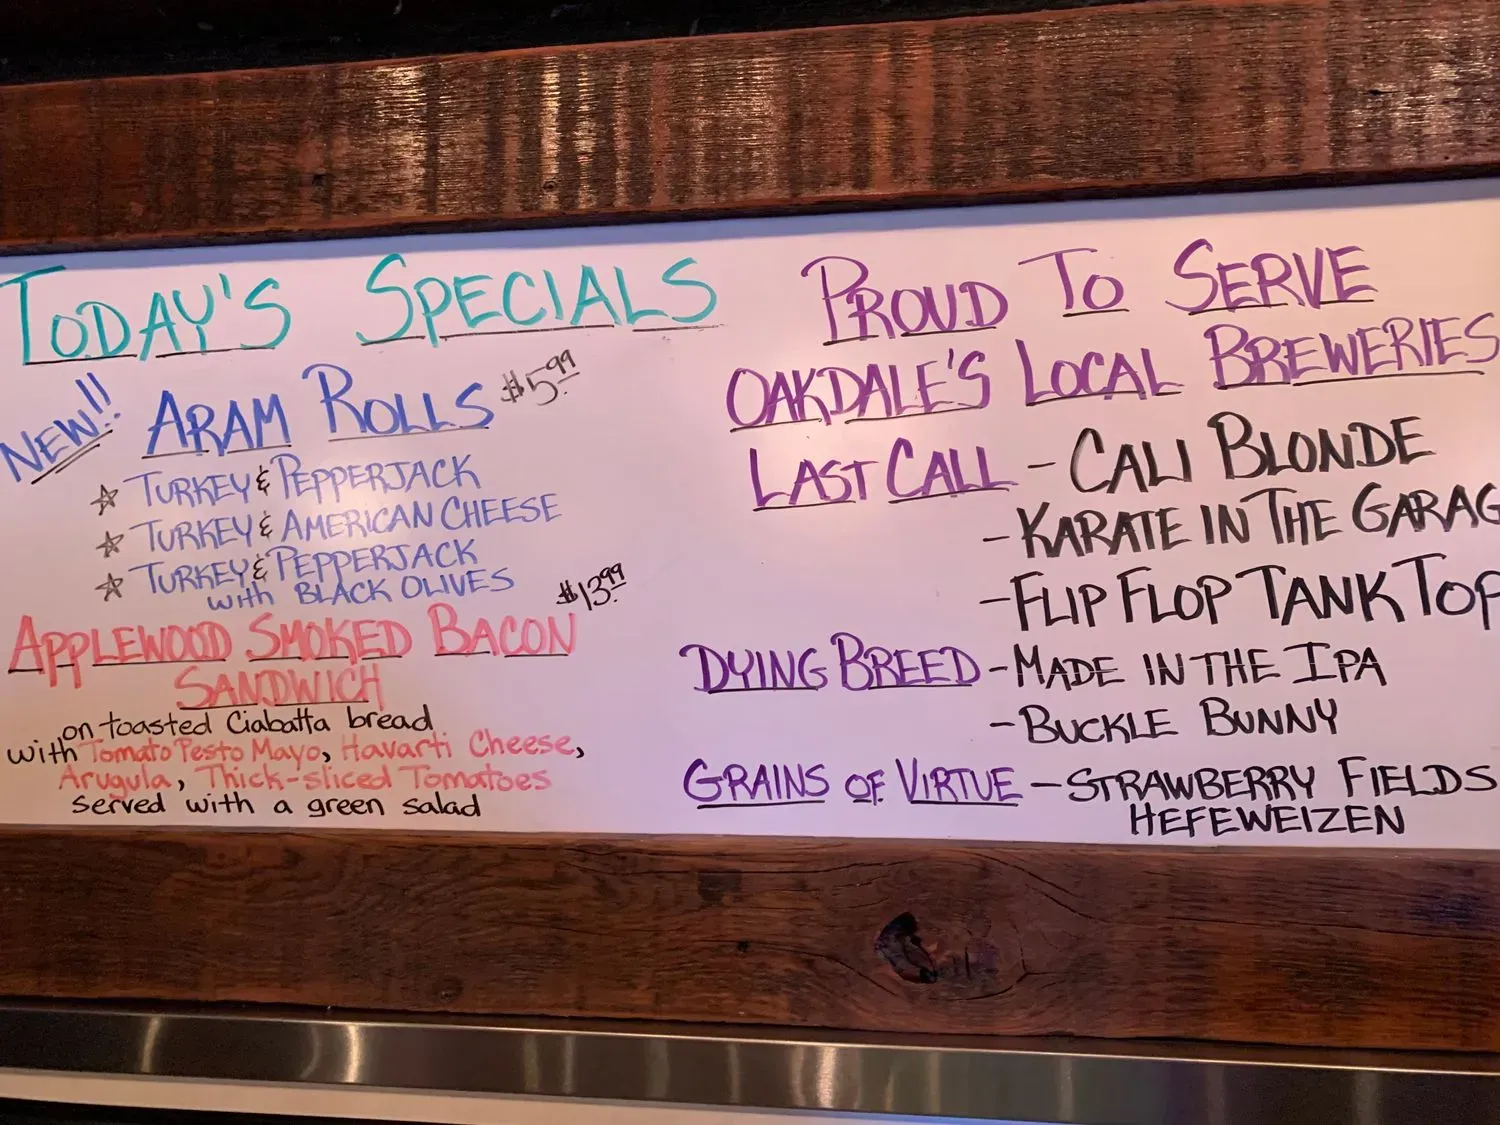 TODAY'S SPECIALS
NEW!!
ARAM ROLLS $5.99
☆ TURKEY & PEPPERJACK
☆ TURKEY & AMERICAN CHEESE
☆ TURKEY & PEPPERJACK
with BLACK OLIVES
$13.99
APPLEWOOD SMOKED BACON
SANDWICH
on toasted Ciabatta bread
with Tomato Pesto Mayo, Havarti Cheese,
Arugula, Thick-sliced Tomatoes
served with a green salad
PROUD TO SERVE
OAKDALE'S LOCAL BREWERIES
LAST CALL - CALI BLONDE
- KARATE IN THE GARAG
- FLIP FLOP TANK TOP
DYING BREED - MADE IN THE IPA
- BUCKLE BUNNY
GRAINS OF VIRTUE - STRAWBERRY FIELDS
HEFEWEIZEN